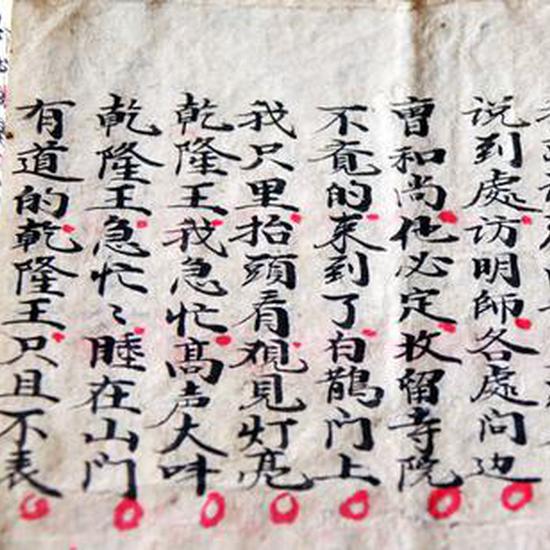 说到處访明師各處问边
曺和尚他必定收留寺院
不觉的来到了白鵲门上
我只里抬頭看观見灯亮
乾隆王我急忙高声大呌
乾隆王急忙〻睡在山门
有道的乾隆王只且不表